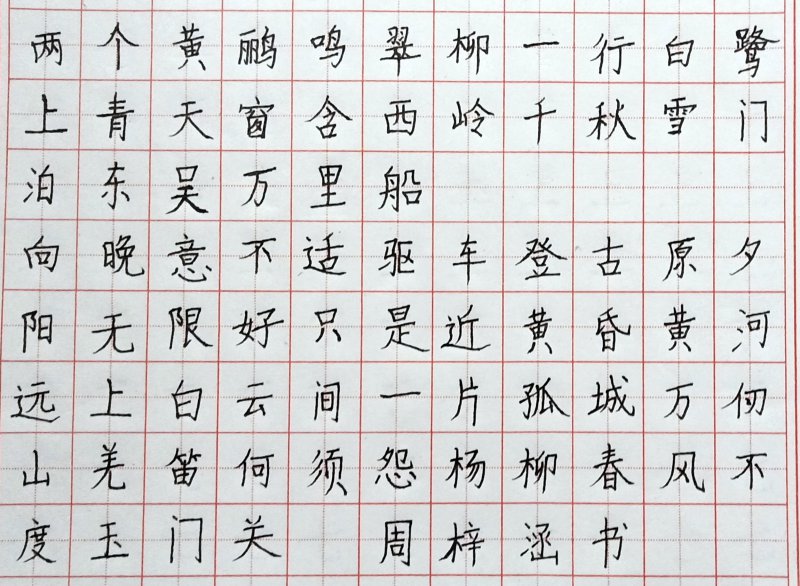 两个黄鹂鸣翠柳一行白鹭
上青天窗含西岭千秋雪门
泊东吴万里船
向晚意不适驱车登古原夕
阳无限好只是近黄昏黄河
远上白云间一片孤城万仞
山羌笛何须怨杨柳春风不
度玉门关 周梓涵书